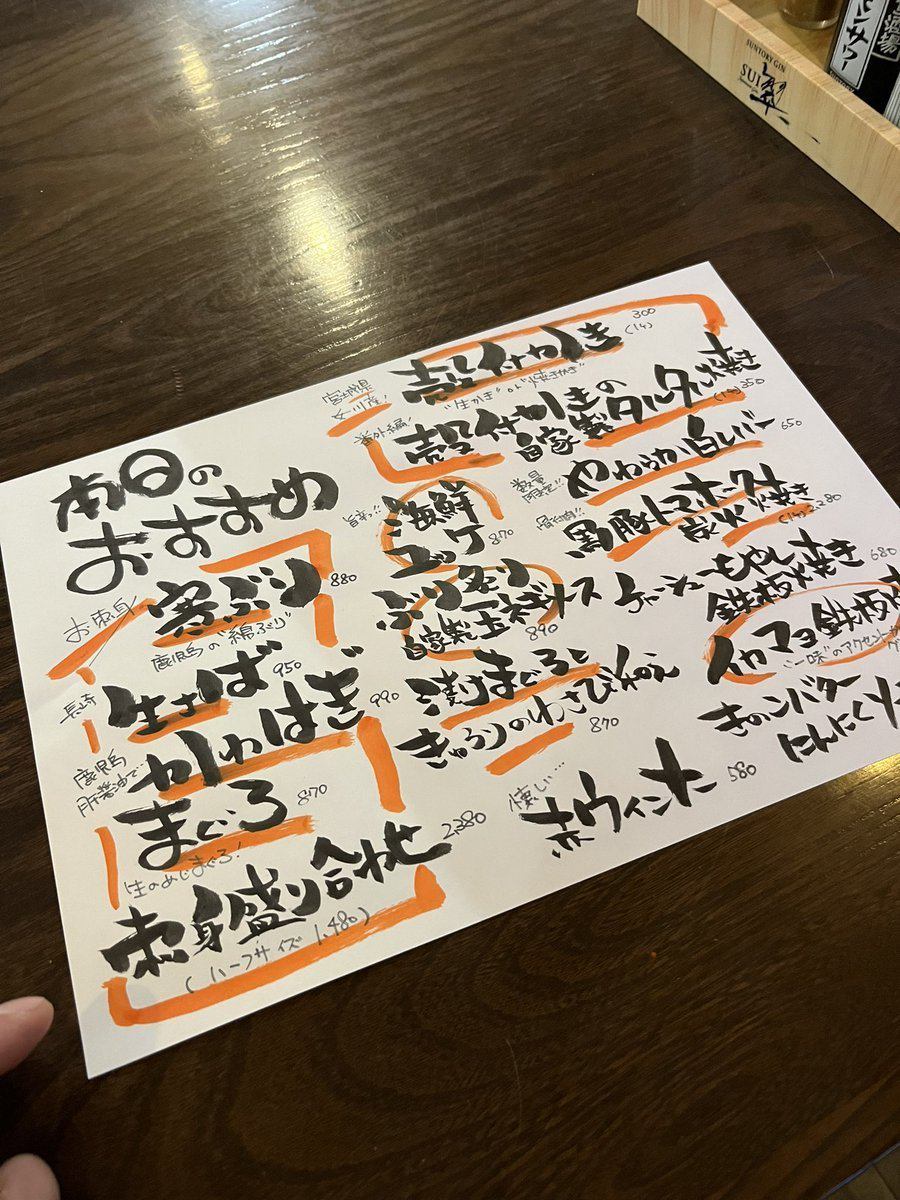 本日の
おすすめ
お刺身
寒ぶり 880
鹿児島の"綿ぶり"
長崎
生さば 950
鹿児島
肝醤油で…
かわはぎ 990
まぐろ 870
生のめじまぐろ!
刺身盛り合わせ 2,280
(ハーフサイズ 1,480)
宮城県
女川産!
殻付かき 300
(1ヶ)
"生かき" or "焼きかき"
番外編!
殻付かきの
自家製タルタル焼き
(1ヶ) 350
旨辛っ!!
海鮮
ユッケ 870
ぶり
自家製玉ネギソース 890
漬けまぐろと
きゅうりのわさび和え 870
懐し…
赤ウインナー 580
数量
限定!!
やわらか白レバー 650
骨付肉!!
黒豚トマホーク
炭火焼き
(1ヶ) 2,280
チャーシューもやし
鉄板焼き 680
イカマヨ鉄板
"一味"のアクセントが
きのこバター
にんにく
SUNTORY GIN
SUI
翠